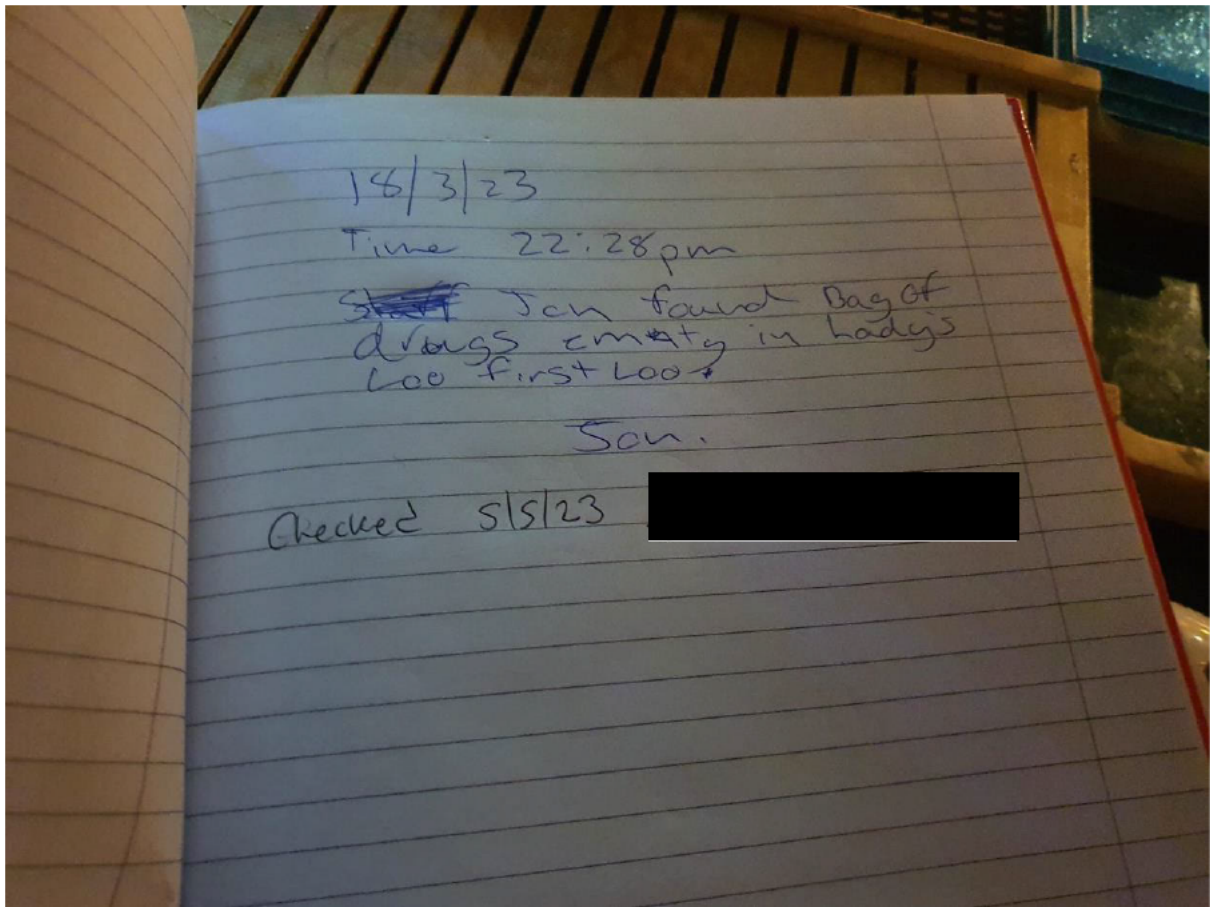 18/3/23
Time 22:28pm
Jan found Bag of
drugs empty in Lady's
Loo first Loo.
Jan.
Checked 5/5/23